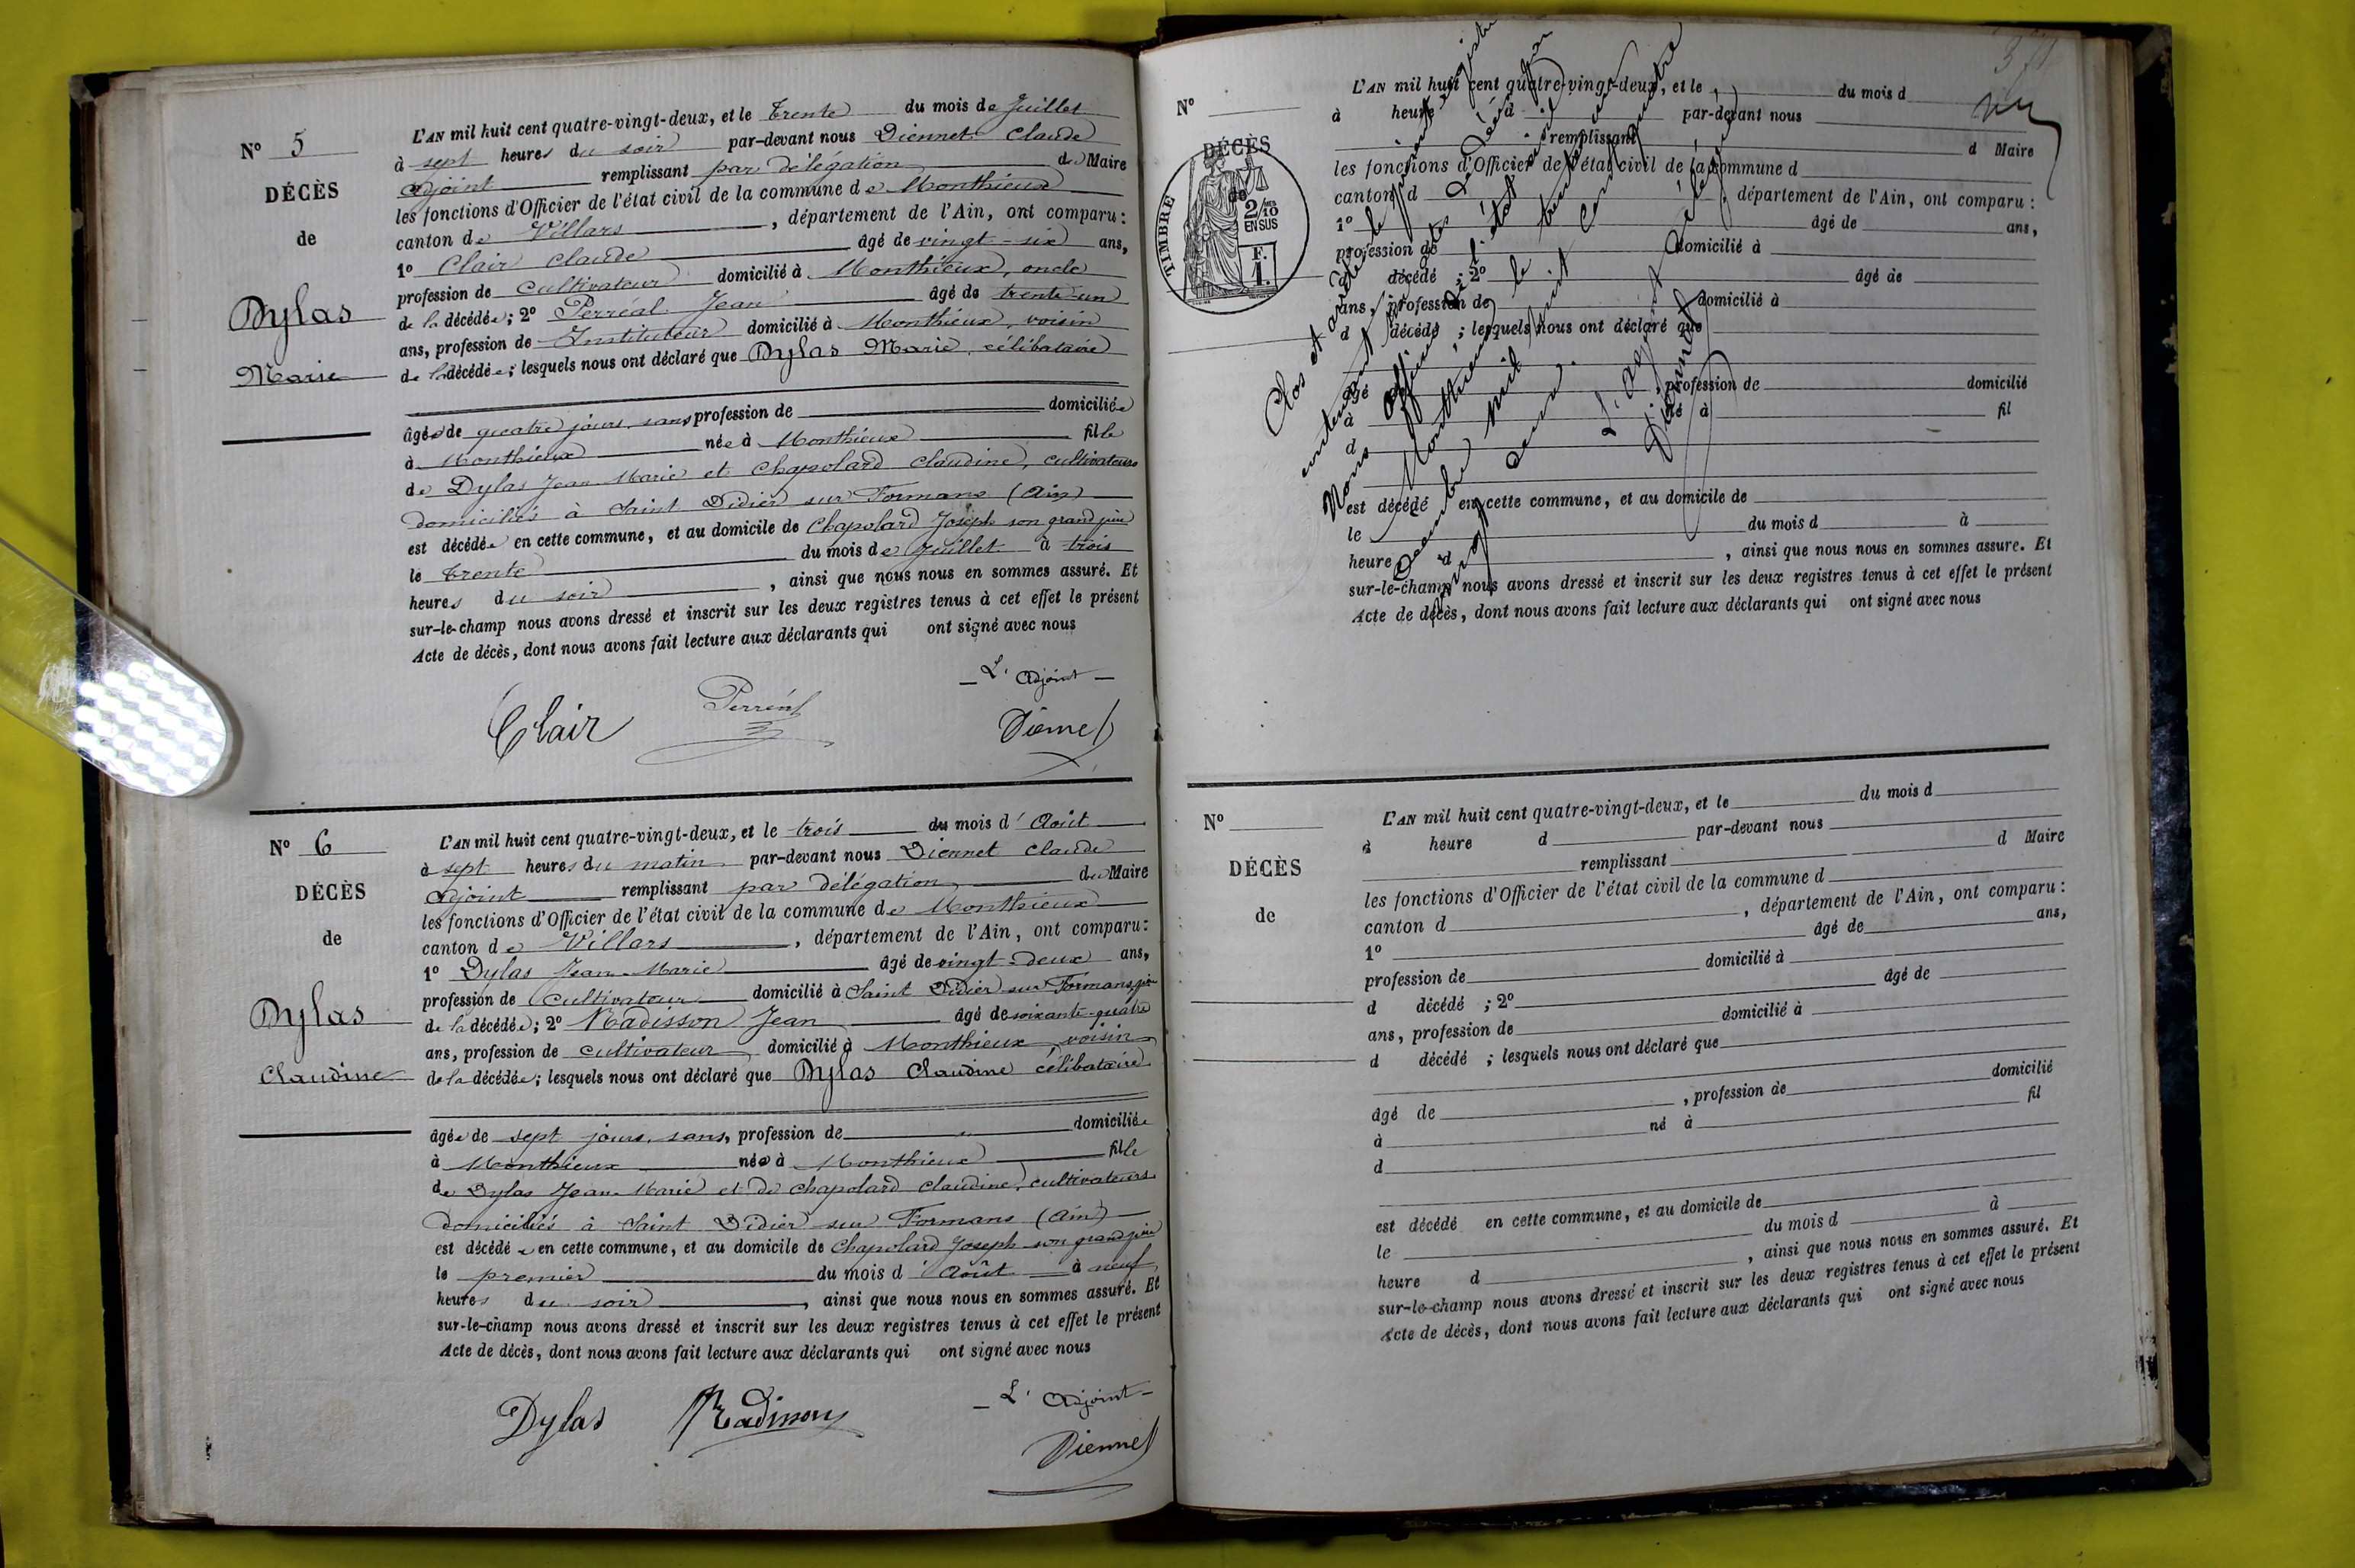 N° 5
DÉCÈS
de
Dylas
Marie
L'AN mil huit cent quatre-vingt-deux, et le trente du mois de Juillet
à sept heures du soir par-devant nous Diennet Claude
adjoint remplissant par délégation du Maire
les fonctions d'Officier de l'état civil de la commune de Monthieux
canton de Villars, département de l'Ain, ont comparu :
1° Clair Claude âgé de vingt-six ans,
profession de cultivateur domicilié à Monthieux, oncle
de la décédée ; 2° Perréal Jean âgé de trente-un
ans, profession de Instituteur domicilié à Monthieux, voisin
de la décédée ; lesquels nous ont déclaré que Dylas Marie, célibataire
âgée de quatre jours, sans profession de domiciliée
à Monthieux née à Monthieux fille
de Dylas Jean Marie et Chapolard Claudine, cultivateurs
domiciliés à Saint Didier sur Formans (Ain)
est décédée en cette commune, et au domicile de Chapolard Joseph son grand père
le trente du mois de Juillet à trois
heures du soir, ainsi que nous nous en sommes assuré. Et
sur-le-champ nous avons dressé et inscrit sur les deux registres tenus à cet effet le présent
Acte de décès, dont nous avons fait lecture aux déclarants qui ont signé avec nous
L'adjoint
Clair Perréal Diennet
N° 6
DÉCÈS
de
Dylas
Claudine
L'AN mil huit cent quatre-vingt-deux, et le trois du mois d'Août
à sept heures du matin par-devant nous Diennet Claude
adjoint remplissant par délégation du Maire
les fonctions d'Officier de l'état civil de la commune de Monthieux
canton de Villars, département de l'Ain, ont comparu :
1° Dylas Jean-Marie âgé de vingt-deux ans,
profession de cultivateur domicilié à Saint Didier sur Formans, père
de la décédée ; 2° Radisson Jean âgé de soixante-quatre
ans, profession de cultivateur domicilié à Monthieux, voisin
de la décédée ; lesquels nous ont déclaré que Dylas Claudine célibataire
âgée de sept jours, sans, profession de domiciliée
à Monthieux née à Monthieux fille
de Dylas Jean-Marie et de Chapolard Claudine, cultivateurs
domiciliés à Saint Didier sur Formans (Ain)
est décédée en cette commune, et au domicile de Chapolard Joseph son grand père
le premier du mois d'Août à neuf
heures du soir, ainsi que nous nous en sommes assuré. Et
sur-le-champ nous avons dressé et inscrit sur les deux registres tenus à cet effet le présent
Acte de décès, dont nous avons fait lecture aux déclarants qui ont signé avec nous
L'adjoint
Dylas Radisson Diennet
N°
DÉCÈS
de
TIMBRE
2/10 EN SUS
F. 1.
L'AN mil huit cent quatre-vingt-deux, et le du mois d
à heure d par-devant nous
remplissant d Maire
les fonctions d'Officier de l'état civil de la commune d
canton d département de l'Ain, ont comparu :
1° âgé de ans,
profession de domicilié à
d décédé ; 2° âgé de
ans, profession de domicilié à
d décédé ; lesquels nous ont déclaré que
âgé profession de domicilié
à né à fil
d
est décédé en cette commune, et au domicile de
le du mois d à
heure d , ainsi que nous nous en sommes assuré. Et
sur-le-champ nous avons dressé et inscrit sur les deux registres tenus à cet effet le présent
Acte de décès, dont nous avons fait lecture aux déclarants qui ont signé avec nous
Clos et arrêté le présent registre
Nous officier de l'état civil
Monthieux, le trente
décembre mil huit cent quatre
vingt deux.
L'adjoint
Diennet
N°
DÉCÈS
de
L'AN mil huit cent quatre-vingt-deux, et le du mois d
à heure d par-devant nous
remplissant d Maire
les fonctions d'Officier de l'état civil de la commune d
canton d , département de l'Ain, ont comparu :
1° âgé de ans,
profession de domicilié à
d décédé ; 2° âgé de
ans, profession de domicilié à
d décédé ; lesquels nous ont déclaré que
âgé de , profession de domicilié
à né à fil
d
est décédé en cette commune, et au domicile de
le du mois d à
heure d , ainsi que nous nous en sommes assuré. Et
sur-le-champ nous avons dressé et inscrit sur les deux registres tenus à cet effet le présent
Acte de décès, dont nous avons fait lecture aux déclarants qui ont signé avec nous